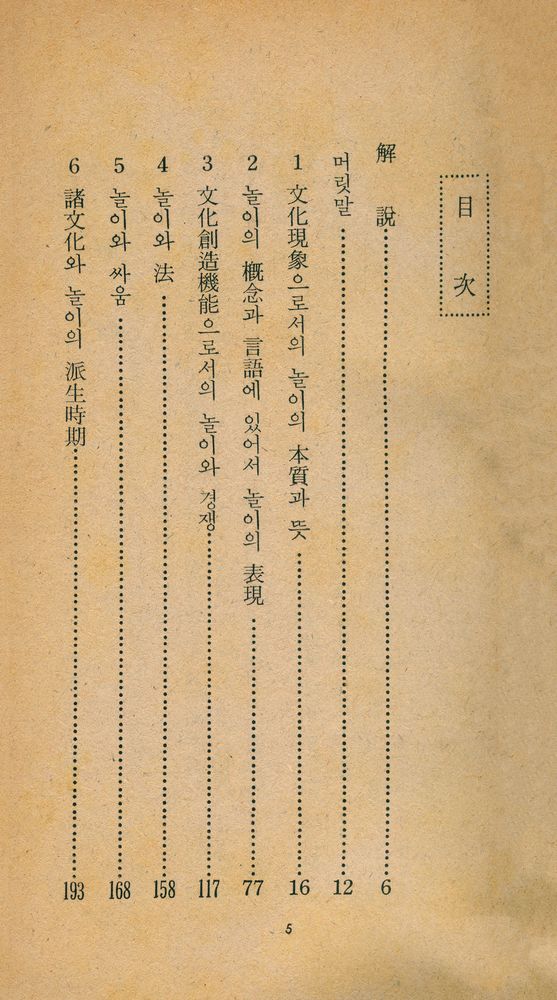 目次
解說 6
머릿말 12
1 文化現象으로서의 놀이의 本質과 뜻 16
2 놀이의 槪念과 言語에 있어서 놀이의 表現 77
3 文化創造機能으로서의 놀이와 경쟁 117
4 놀이와 法 158
5 놀이와 싸움 168
6 諸文化와 놀이의 派生時期 193
5